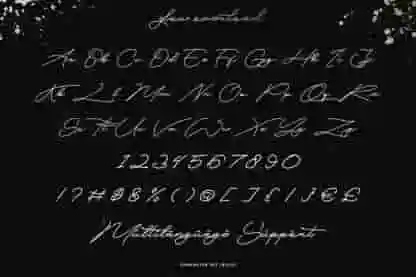 Aa Bb Cc Dd Ee Ff Gg Hh Ii Jj
Kk Ll Mm Nn Oo Pp Qq Rr
Ss Tt Uu Vv Ww Xx Yy Zz
1 2 3 4 5 6 7 8 9 0
! ? # $ & % ( ) @ [ ] { } € £
Multilanguage Support